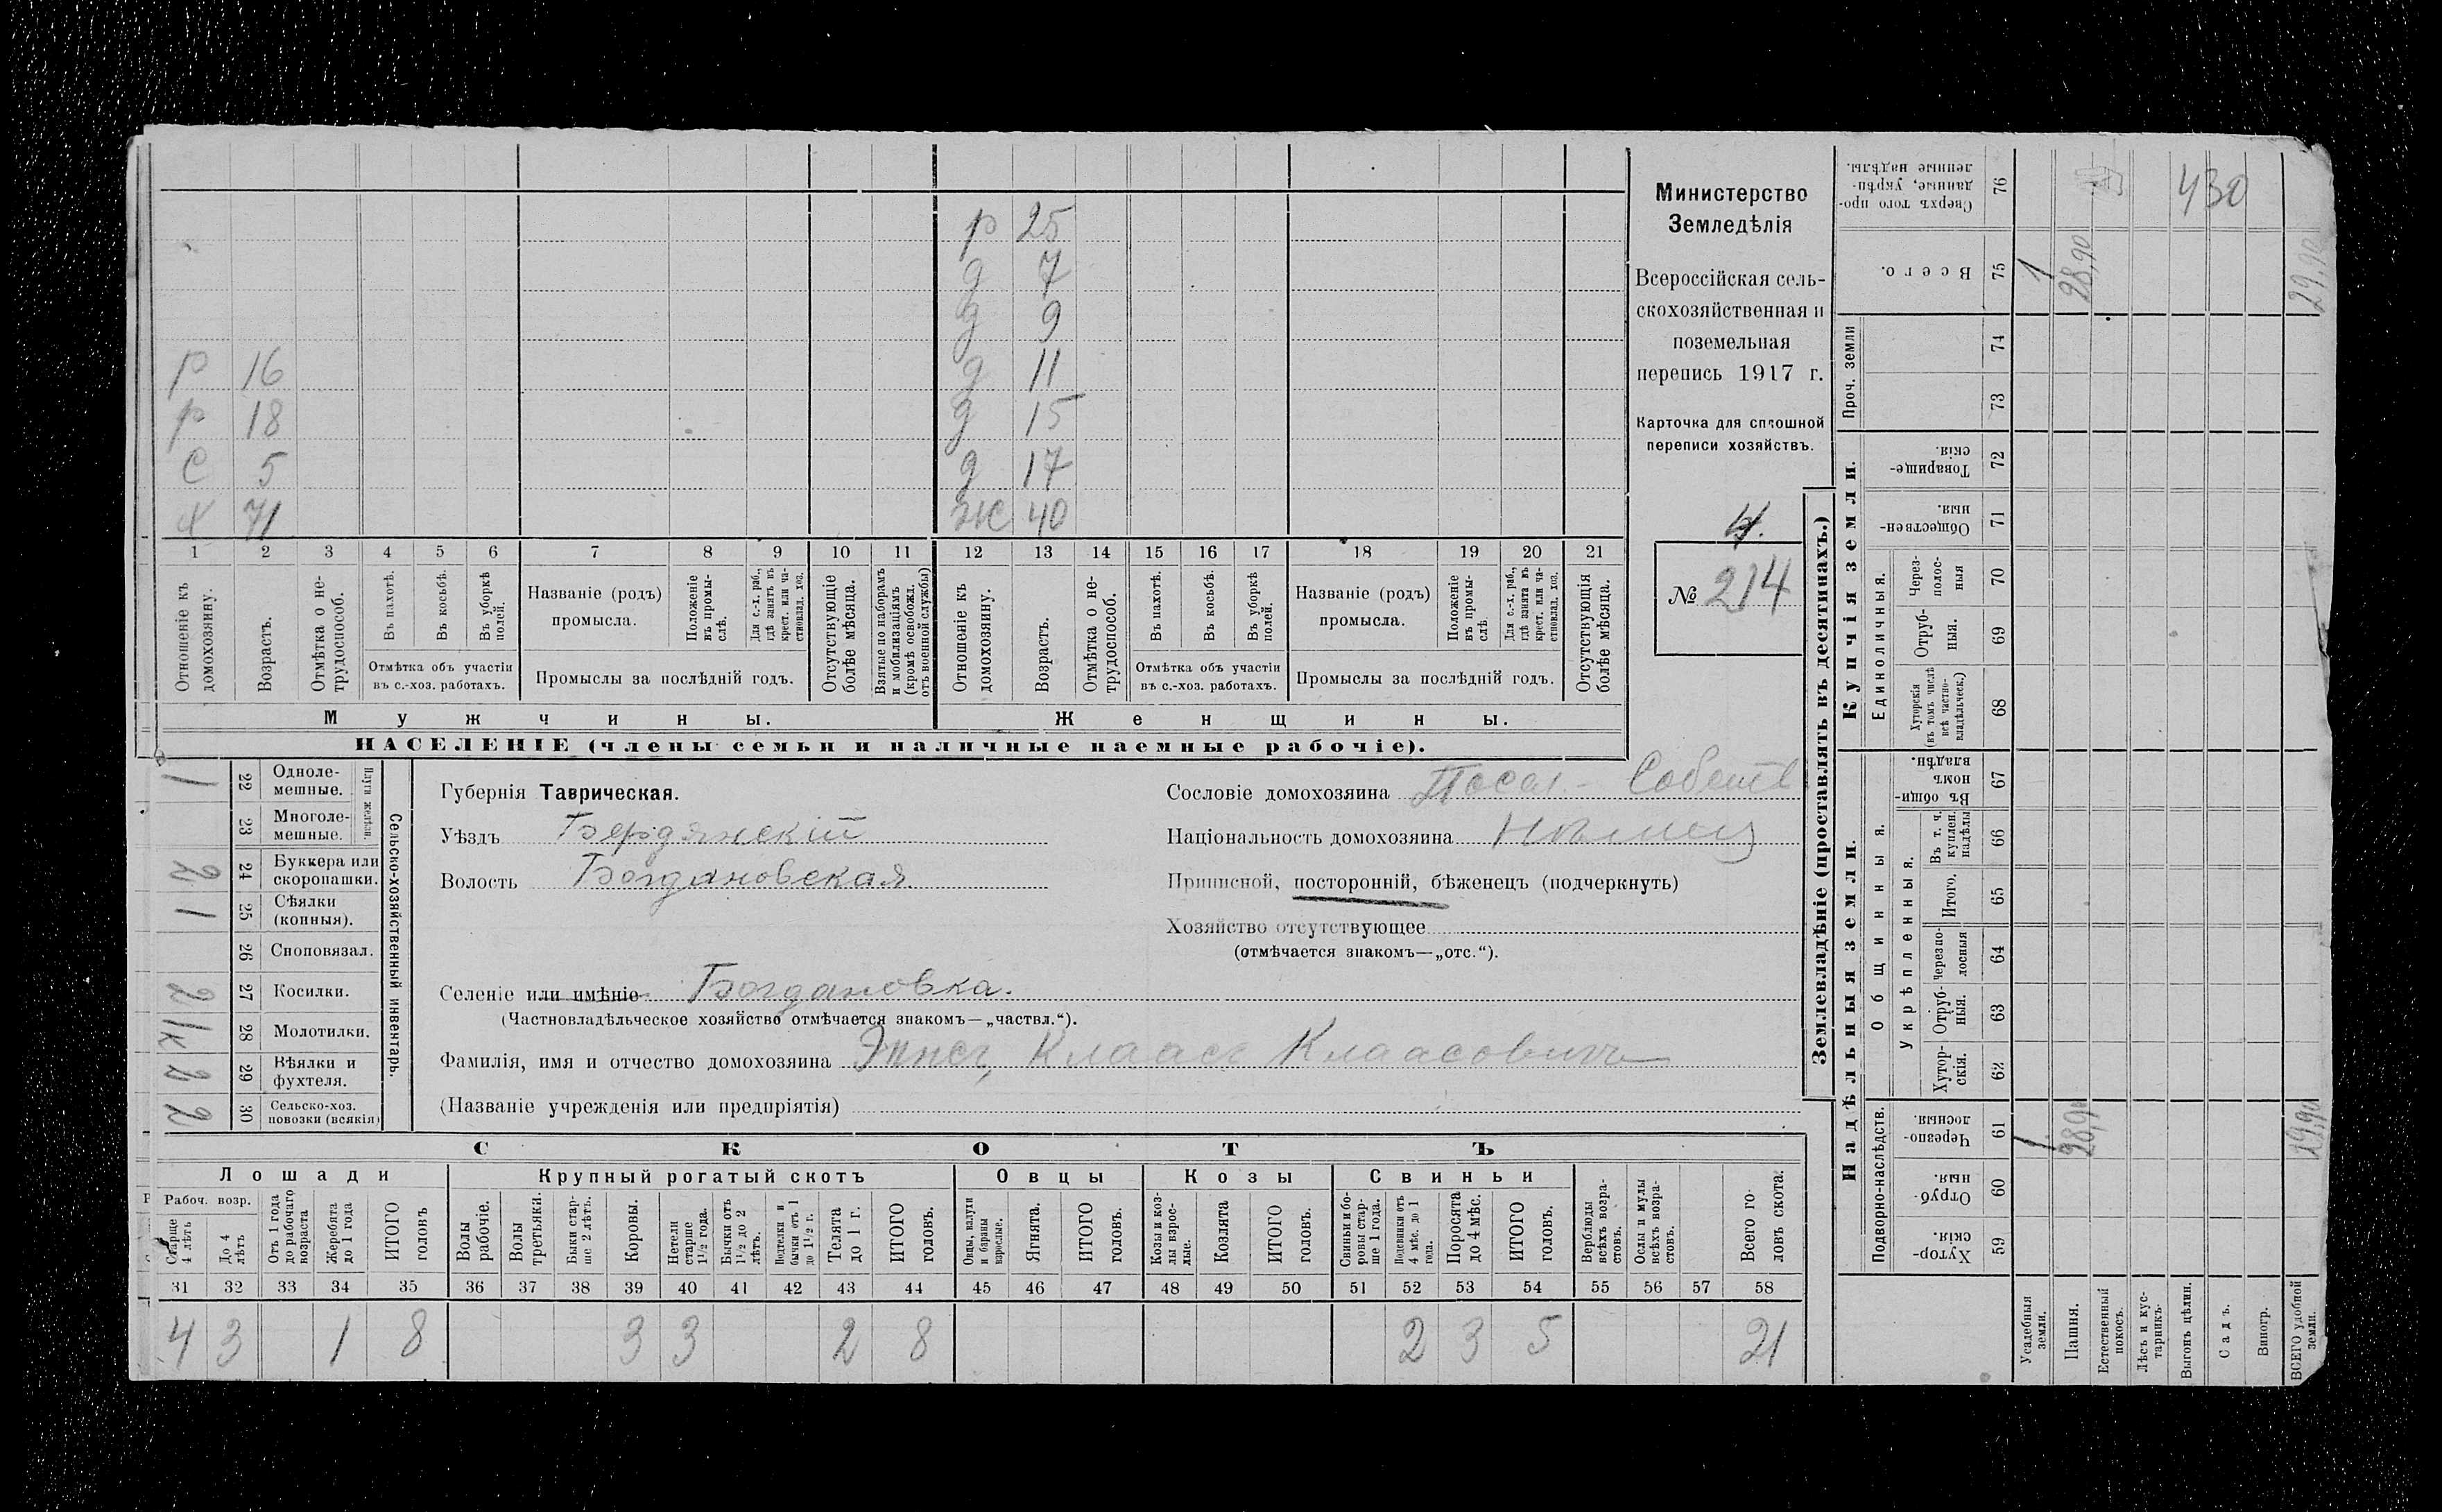 р 25
д 7
д 9
р 16 д 11
р 18 д 15
с 5 д 17
х 71 ж 40
1 2 3 4 5 6 7 8 9 10 11 12 13 14 15 16 17 18 19 20 21
Отношеніе къ домохозяину.
Возрастъ.
Отмѣтка о не-
трудоспособ.
Въ пахотѣ.
Въ косьбѣ.
Въ уборкѣ
полей.
Отмѣтка объ участіи
въ с.-хоз. работахъ.
Названіе (родъ)
промысла.
Положеніе
въ промы-
слѣ.
Для с.-х. раб.,
гдѣ занятъ въ
крест. или ча-
стновлад. хоз.
Промыслы за послѣдній годъ.
Отсутствующіе
болѣе мѣсяца.
Взятые по наборамъ
и мобилизаціямъ
(кромѣ освобожд.
отъ военной службы)
Отношеніе къ
домохозяину.
Возрастъ.
Отмѣтка о не-
трудоспособ.
Въ пахотѣ.
Въ косьбѣ.
Въ уборкѣ
полей.
Отмѣтка объ участіи
въ с.-хоз. работахъ.
Названіе (родъ)
промысла.
Положеніе
въ промы-
слѣ
Для с.-х. раб.,
гдѣ занята въ
крест. или ча-
стновлад. хоз.
Промыслы за послѣдній годъ.
Отсутствующія
болѣе мѣсяца.
Мужчины. Женщины.
НАСЕЛЕНІЕ (члены семьи и наличные наемные рабочіе).
Министерство
Земледѣлія
Всероссійская сель-
скохозяйственная и
поземельная
перепись 1917 г.
Карточка для сплошной
переписи хозяйствъ.
4.
№ 214
1 22 Одноле-
мешные.
23 Многоле-
мешные.
Плуги желѣзн.
2 24 Буккера или
скоропашки.
1 25 Сѣялки
(конныя).
26 Сноповязал.
2 27 Косилки.
1к 28 Молотилки.
2 29 Вѣялки и
фухтеля.
2 30 Сельско-хоз.
повозки (всякія)
Сельско-хозяйственный инвентарь.
Губернія Таврическая.
Уѣздъ Бердянскій
Волость Богдановская
Селеніе или имѣніе Богдановка.
(Частновладѣльческое хозяйство отмѣчается знакомъ—„частвл.“).
Фамилія, имя и отчество домохозяина Эппъ, Клаасъ Клаасовичъ
(Названіе учрежденія или предпріятія)
Сословіе домохозяина Посел.- Собств
Національность домохозяина Нѣмец
Приписной, посторонній, бѣженецъ (подчеркнуть)
Хозяйство отсутствующее
(отмѣчается знакомъ—„отс.“).
СКОТЪ
Лошади Крупный рогатый скотъ Овцы Козы Свиньи
Рабоч. возр.
Старше
4 лѣтъ
До 4
лѣтъ
Отъ 1 года
до рабочаго
возраста
Жеребята
до 1 года
ИТОГО
головъ
Волы
рабочіе.
Волы
третьяки.
Быки стар-
ше 2 лѣтъ.
Коровы.
Нетели
старше
1½ года.
Бычки отъ
1½ до 2
лѣтъ.
Подтелки и
бычки отъ 1
до 1½ г.
Телята
до 1 г.
ИТОГО
головъ.
Овцы, валухи
и бараны
взрослые.
Ягнята.
ИТОГО
головъ.
Козы и коз-
лы взрос-
лые.
Козлята
ИТОГО
головъ.
Свиньи и бо-
ровы стар-
ше 1 года.
Подсвинки отъ
4 мѣс. до 1
года.
Поросята
до 4 мѣс.
ИТОГО
головъ.
Верблюды
всѣхъ возра-
стовъ.
Ослы и мулы
всѣхъ возра-
стовъ.
Всего го-
ловъ скота.
31 32 33 34 35 36 37 38 39 40 41 42 43 44 45 46 47 48 49 50 51 52 53 54 55 56 57 58
4 3 1 8 3 3 2 8 2 3 5 21
Землевладѣніе (проставлять въ десятинахъ.)
Надѣльныя земли. Купчія земли. Проч. земли
Подворно-наслѣдств.
Общинныя.
Укрѣпленныя.
Единоличныя.
Хутор-
скія. 59
Отруб-
ныя. 60
Черезпо-
лосныя 61
Хутор-
скія. 62
Отруб-
ныя. 63
Черезпо-
лосныя 64
Итого. 65
Въ т. ч.
куплен.
надѣлы 66
Въ общи-
номъ
владѣн. 67
Хуторскія
(въ томъ числѣ
всѣ частно-
владѣльческ.) 68
Отруб-
ныя. 69
Через-
полос-
ныя 70
Обществен-
ныя. 71
Товарище-
скія. 72
73
74
Всего. 75
Сверхъ того про-
данные, укрѣп-
ленные надѣлы. 76
Усадебныя
земли.
Пашня.
Естественный
покосъ.
Лѣсъ и кус-
тарникъ.
Выгонъ цѣлин.
Садъ.
Виногр.
ВСЕГО удобной
земли.
1 28,90 29,90
1 28,90 29,90
430